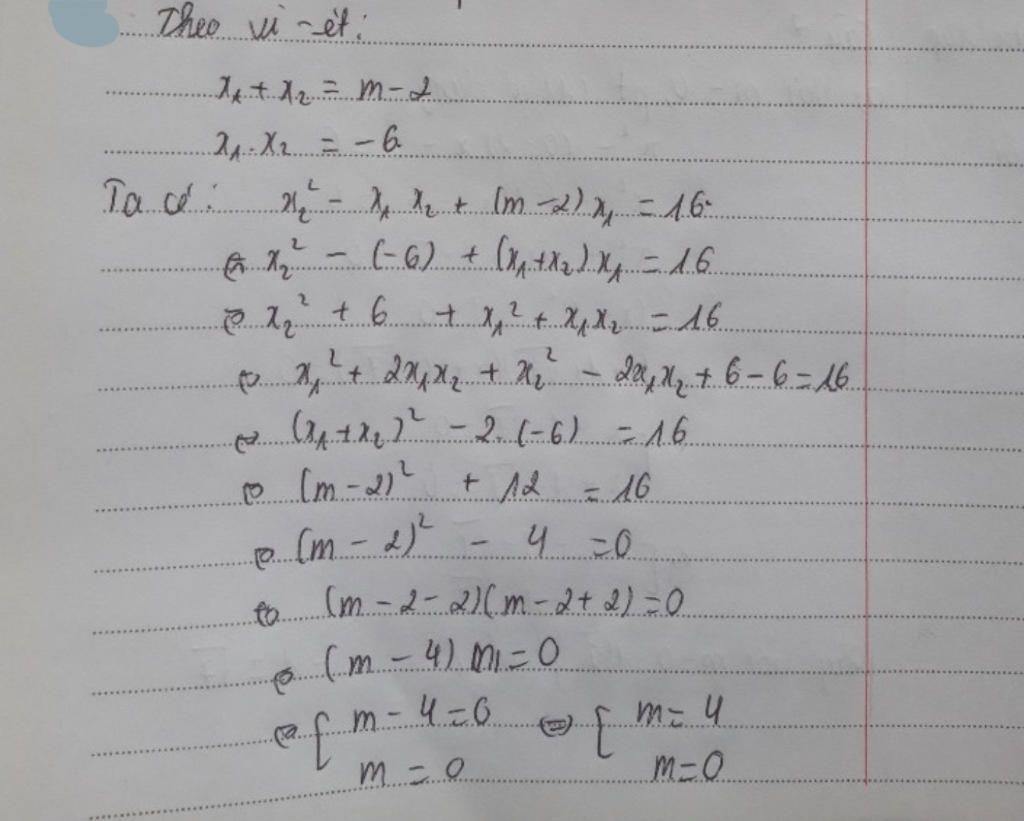 Theo vi-ét:
x₁ + x₂ = m - 2
x₁ . x₂ = -6
Ta có: x₂² - x₁ x₂ + (m - 2) x₁ = 16
⇔ x₂² - (-6) + (x₁ + x₂) x₁ = 16
⇔ x₂² + 6 + x₁² + x₁x₂ = 16
⇔ x₁² + 2x₁x₂ + x₂² - 2x₁x₂ + 6 - 6 = 16
⇔ (x₁ + x₂)² - 2. (-6) = 16
⇔ (m - 2)² + 12 = 16
⇔ (m - 2)² - 4 = 0
⇔ (m - 2 - 2)(m - 2 + 2) = 0
⇔ (m - 4) m = 0
⇔ [ m - 4 = 0 ⇔ [ m = 4
m = 0 m = 0